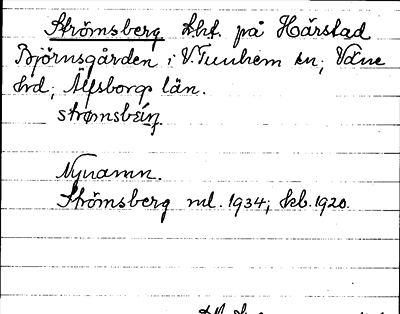 Strömsberg Lht. på Hårstad
Björnsgården i V. Tunhem sn; Väne
hrd; Älfsborgs län.
Nynamn.
Strömsberg ml. 1934; skb. 1920.